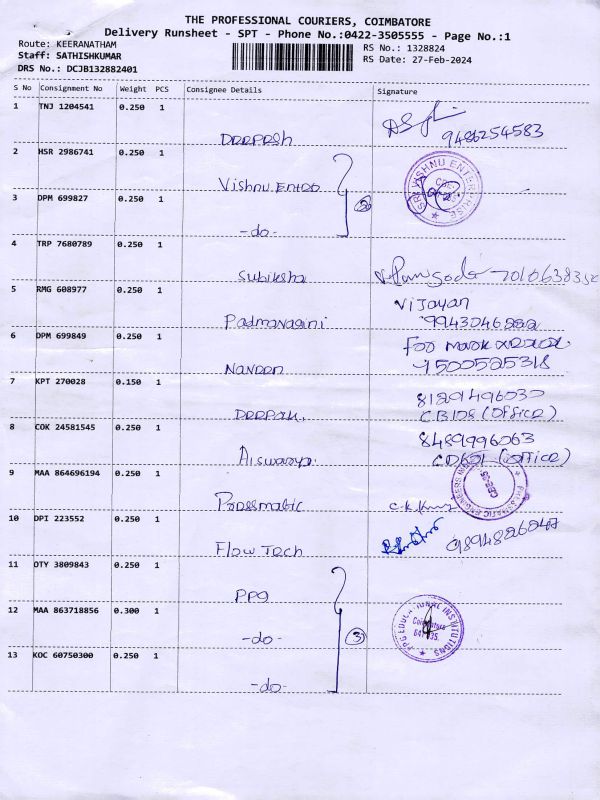 THE PROFESSIONAL COURIERS, COIMBATORE
Delivery Runsheet - SPT - Phone No.:0422-3505555 - Page No.:1
Route: KEERANATHAM
RS No.: 1328824
Staff: SATHISHKUMAR
RS Date: 27-Feb-2024
DRS No.: DCJB132882401
S No Consignment No Weight PCS Consignee Details Signature
1 TNJ 1204541 0.250 1
Deepesh 9486254583
2 HSR 2986741 0.250 1
Vishnu.Enter
SRI VISHNU ENTERPRISE
3 DPM 699827 0.250 1
-do-
4 TRP 7680789 0.250 1
Subiksha
5 RMG 608977 0.250 1
Vijayan
Padmavagini 9943046222
6 DPM 699849 0.250 1
Naveen 9500525318
7 KPT 270028 0.150 1
8129496030
Deepak. CB108 (office)
8 COK 24581545 0.250 1
8489996063
Aiswarya. (office)
9 MAA 864696194 0.250 1
Pressmatic C.K.
10 DPI 223552 0.250 1
Flow Tech 9894826047
11 OTY 3809843 0.250 1
PPG
12 MAA 863718856 0.300 1
-do- 3
PPG EDUCATIONAL INSTITUTIONS
Coimbatore
641 035.
13 KOC 60750300 0.250 1
-do-